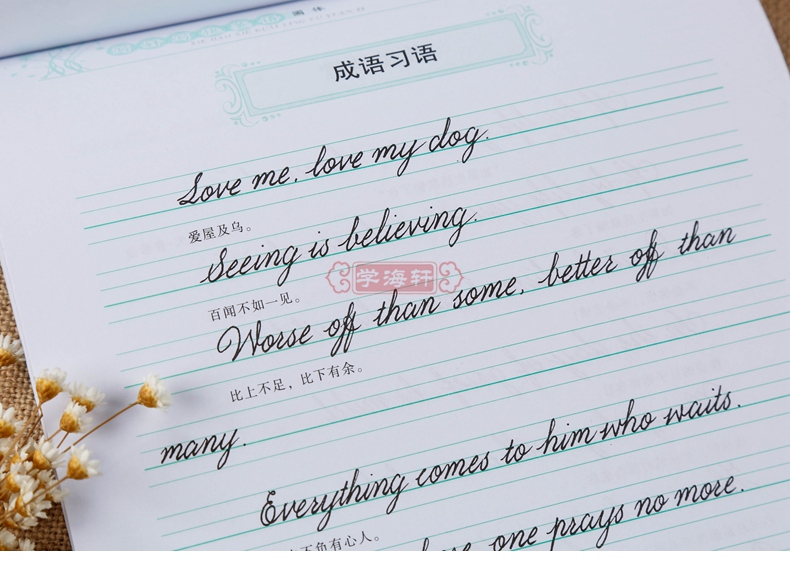 圆体
成语习语
Love me, love my dog.
爱屋及乌。
Seeing is believing.
学海轩
百闻不如一见。
Worse off than some, better off than
比上不足，比下有余。
many.
Everything comes to him who waits.
不负有心人。
one prays no more.